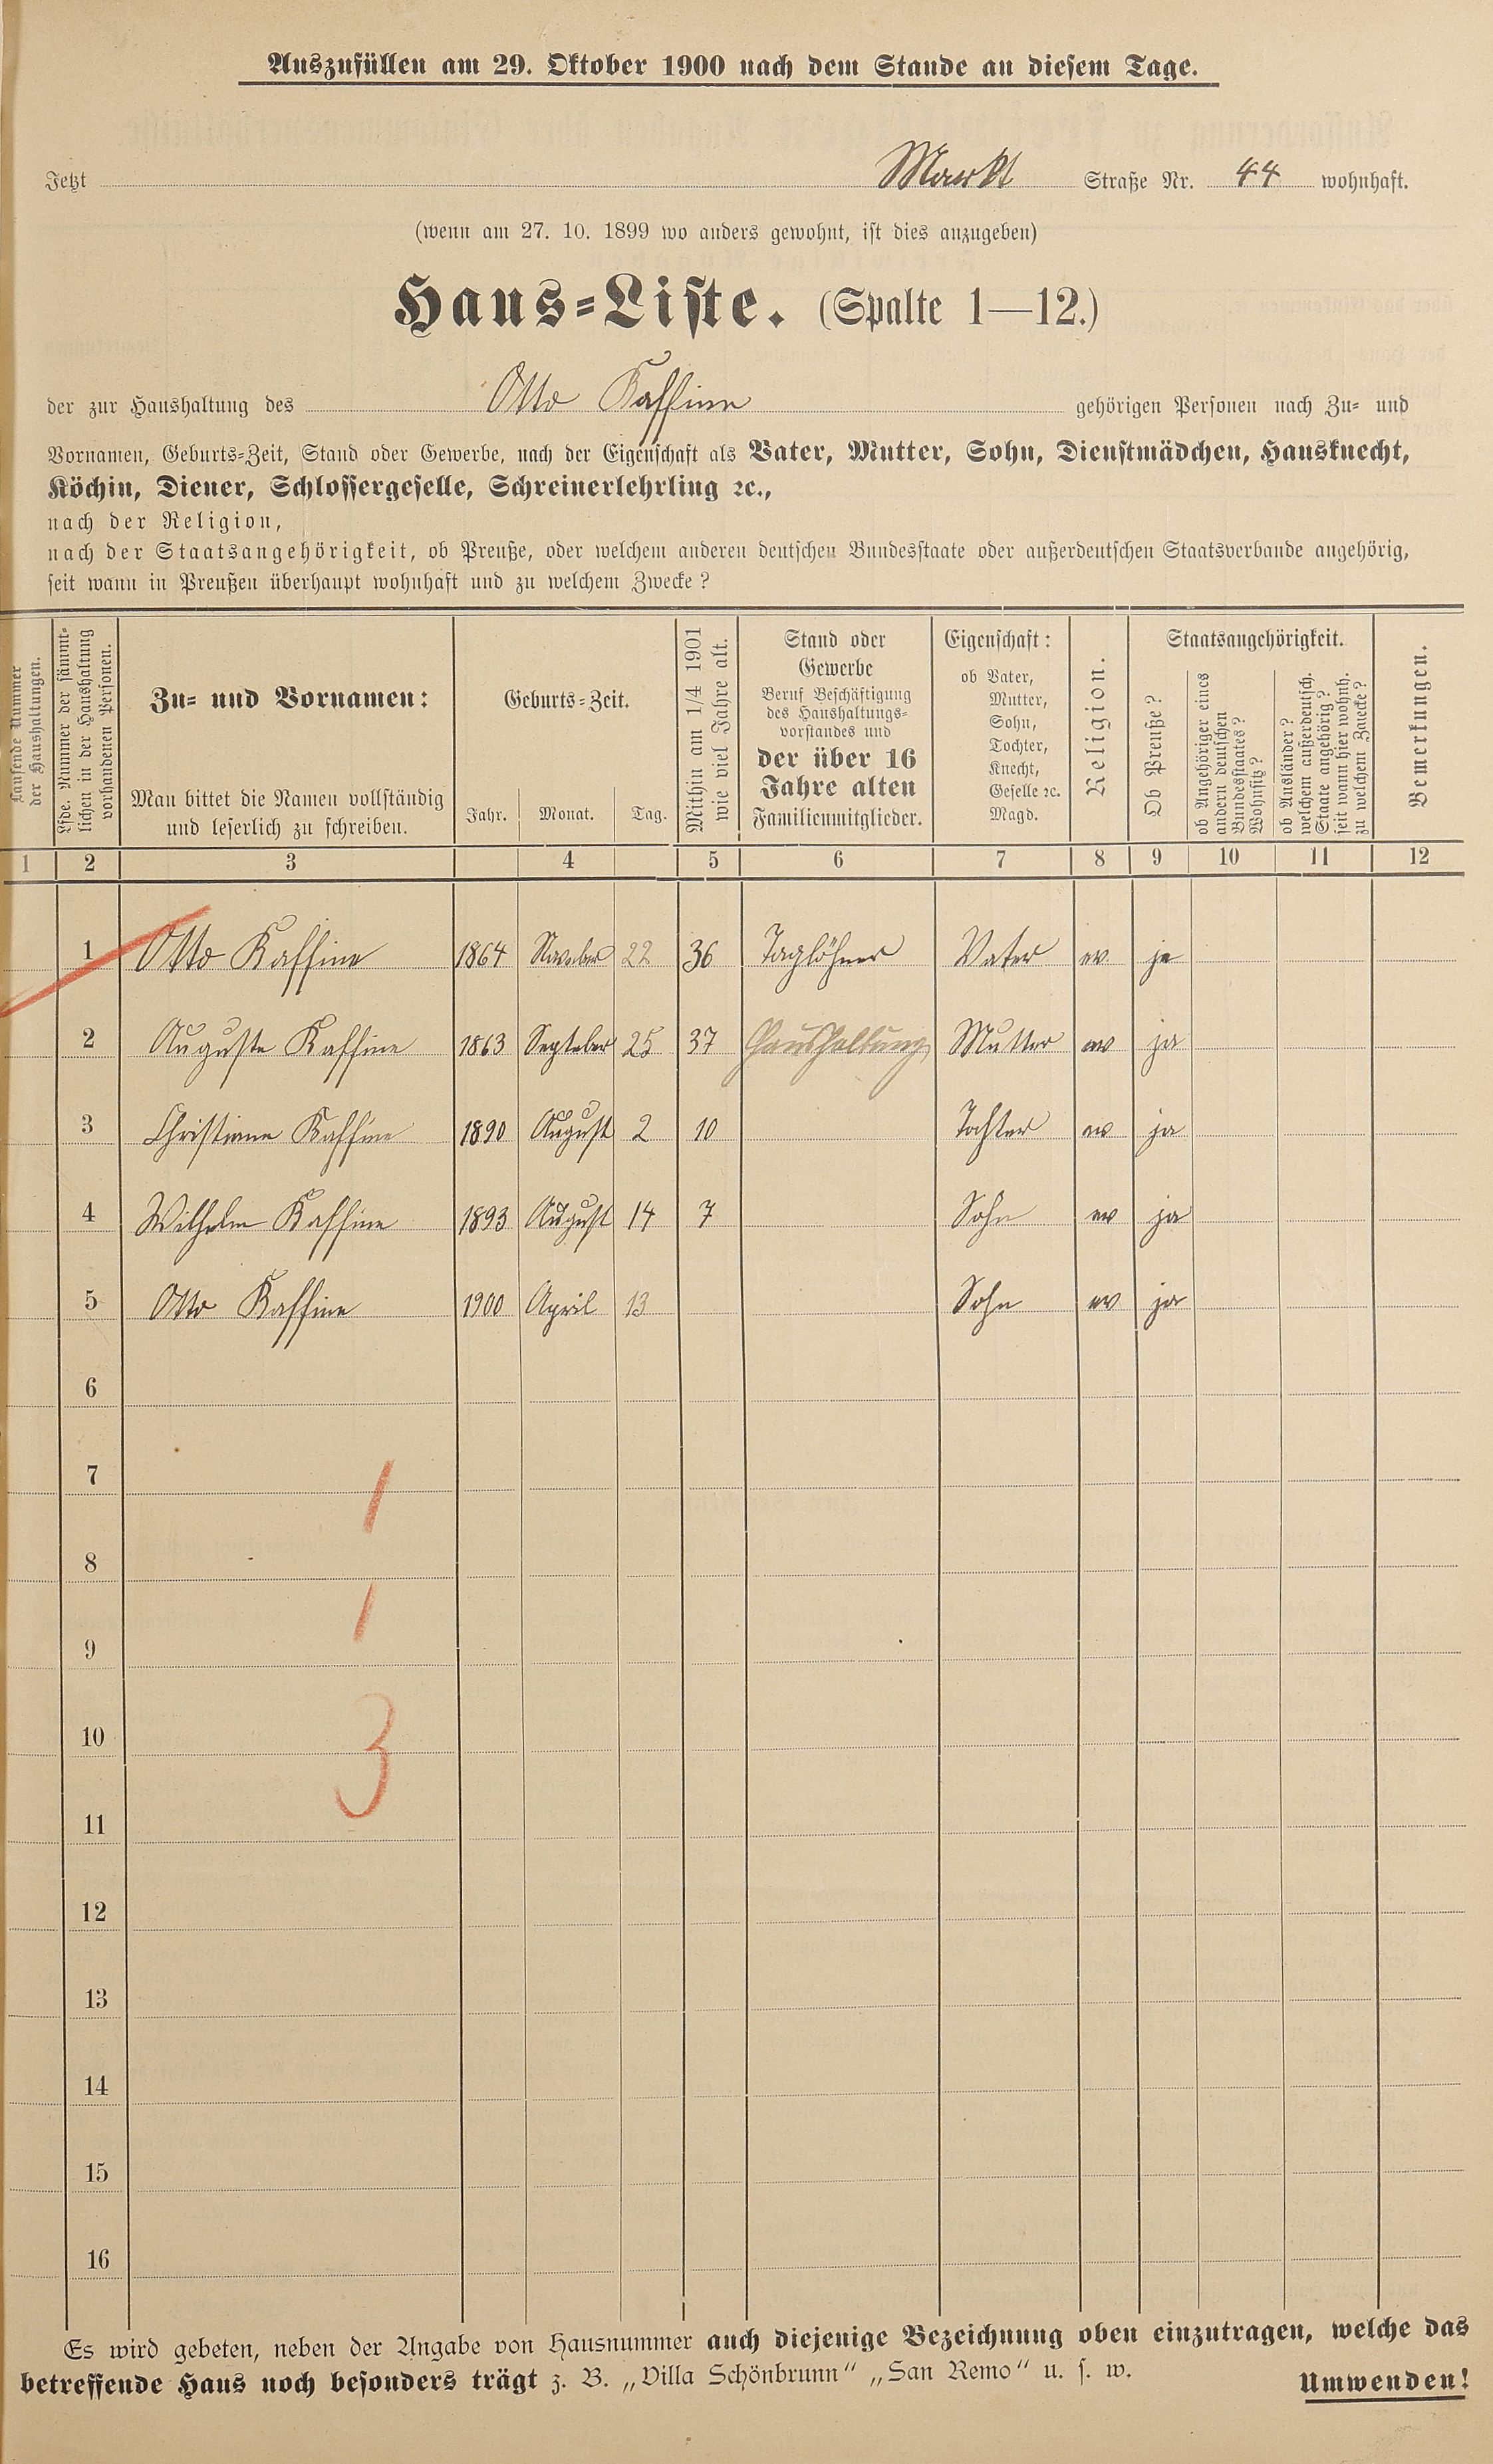 Auszufüllen am 29. Oktober 1900 nach dem Stande an diesem Tage.
Jetzt Markt Straße Nr. 44 wohnhaft.
(wenn am 27. 10. 1899 wo anders gewohnt, ist dies anzugeben)
Haus-Liste. (Spalte 1—12.)
der zur Haushaltung des Otto Kaffine gehörigen Personen nach Zu- und
Vornamen, Geburts-Zeit, Stand oder Gewerbe, nach der Eigenschaft als Vater, Mutter, Sohn, Dienstmädchen, Hausknecht,
Köchin, Diener, Schlossergeselle, Schreinerlehrling ꝛc.,
nach der Religion,
nach der Staatsangehörigkeit, ob Preuße, oder welchem anderen deutschen Bundesstaate oder außerdeutschen Staatsverbande angehörig,
seit wann in Preußen überhaupt wohnhaft und zu welchem Zwecke?
Laufende Nummer
der Haushaltungen.
Lfde. Nummer der sämmt-
lichen in der Haushaltung
vorhandenen Personen.
Zu- und Vornamen:
Man bittet die Namen vollständig
und leserlich zu schreiben.
Geburts-Zeit.
Jahr. Monat. Tag.
Mithin am 1/4 1901
wie viel Jahre alt.
Stand oder
Gewerbe
Beruf Beschäftigung
des Haushaltungs-
vorstandes und
der über 16
Jahre alten
Familienmitglieder.
Eigenschaft:
ob Vater,
Mutter,
Sohn,
Tochter,
Knecht,
Geselle ꝛc.
Magd.
Religion.
Staatsangehörigkeit.
Ob Preuße?
ob Angehöriger eines
andern deutschen
Bundesstaates?
Wohnsitz?
ob Ausländer?
welchem außerdeutsch.
Staate angehörig?
seit wann hier wohnh.
zu welchem Zwecke?
Bemerkungen.
1 2 3 4 5 6 7 8 9 10 11 12
1 Otto Kaffine 1864 November 22 36 Taglöhner Vater ev. ja
2 Auguste Kaffine 1863 September 25 37 Haushaltung Mutter ev ja
3 Christiane Kaffine 1890 August 2 10 Tochter ev ja
4 Wilhelm Kaffine 1893 August 14 7 Sohn ev ja
5 Otto Kaffine 1900 April 13 Sohn ev ja
6
7
1
8
1
9
10
3
11
12
13
14
15
16
Es wird gebeten, neben der Angabe von Hausnummer auch diejenige Bezeichnung oben einzutragen, welche das
betreffende Haus noch besonders trägt z. B. „Villa Schönbrunn“ „San Remo“ u. s. w.
Umwenden!